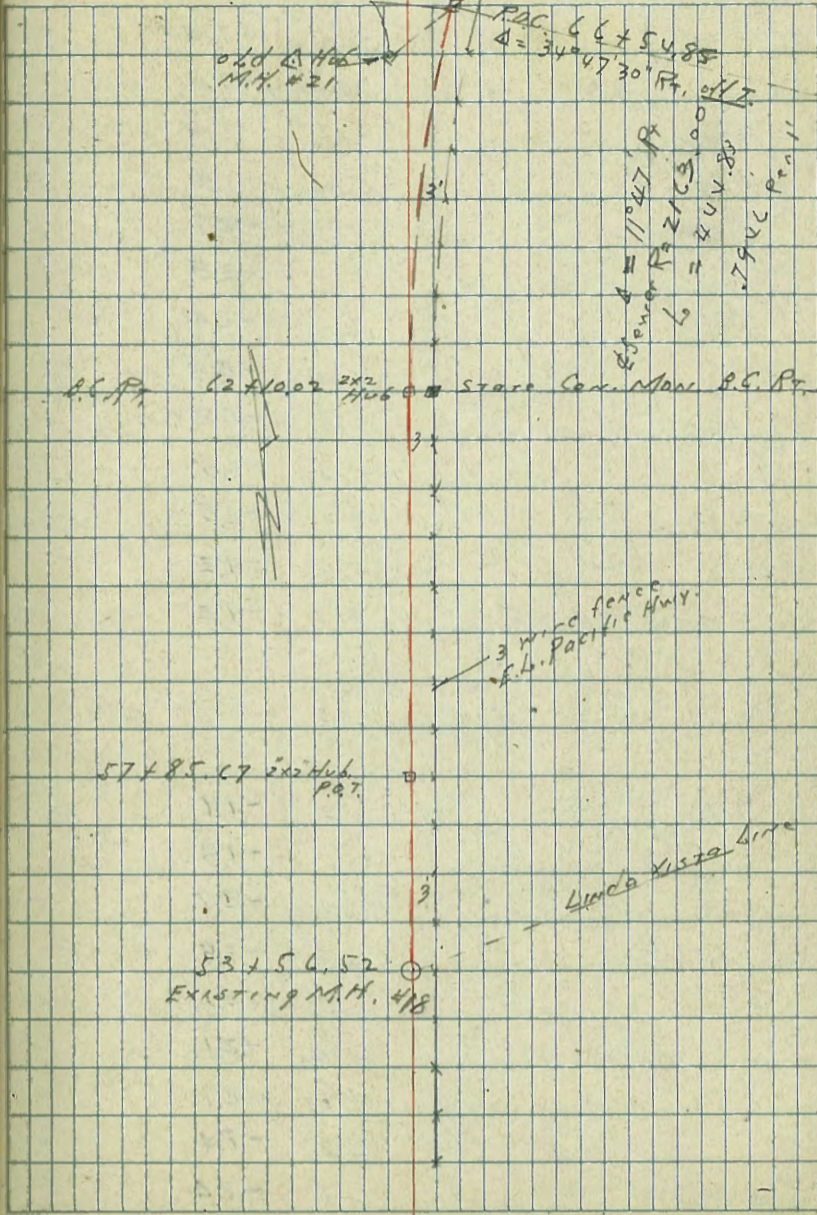 P.O.C. 66+54.85
Δ = 34°47'30" Rt.
old Δ Hub
M.H. #21
Δ = 11°47' Rt
Sewer R = 2163.00
L = 444.83
.7946 Per 1'
3'
B.C. Rt. 62+10.02 2x2 Hub
State Con. Mon. B.C. Rt.
3
3 wire fence
E.L. Pacific Hwy.
57+85.67 2"x2" Hub
P.O.T.
3'
Linda Vista Line
53+56.52
Existing M.H. #18